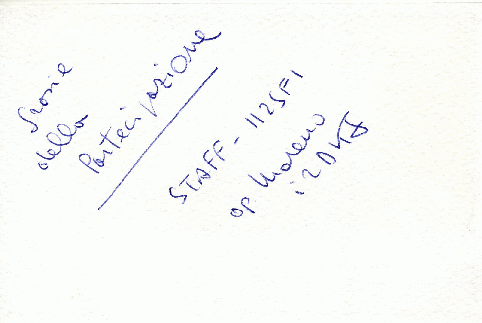 Storie
della
Partecipazione
STAFF - II2SFI
op. Moreno
i2DMJ